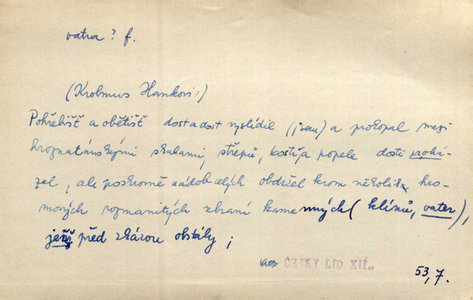 vatra? f.
(Krolmus Hankovi:)
Pohřebišť a obětišť dost a dost vyslídil (jsem) a prokopal mezi
hroznatánskými skalami, střepů, kostí a popele dosti
ale poskromě celých obdržel krom několik kro-
mových rozmanitých zbraní kamenných (klínů, vater),
ježž před zkázou obstály;
ČESKÝ LID XII,
53, 7.